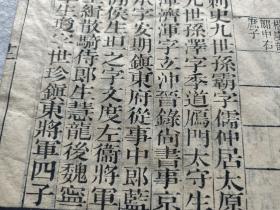 關中右
庶子
刺史九世孫霸字儒仲居太原
九世孫澤字季道鴈門太守生
渾濟渾字玄沖晉錄尚書事京
字安期鎮東府從事中郎藍
侯生坦之字文度左衞將軍
緝散騎侍郎生慧龍後魏寧
生瓊字世珍鎮東將軍四子